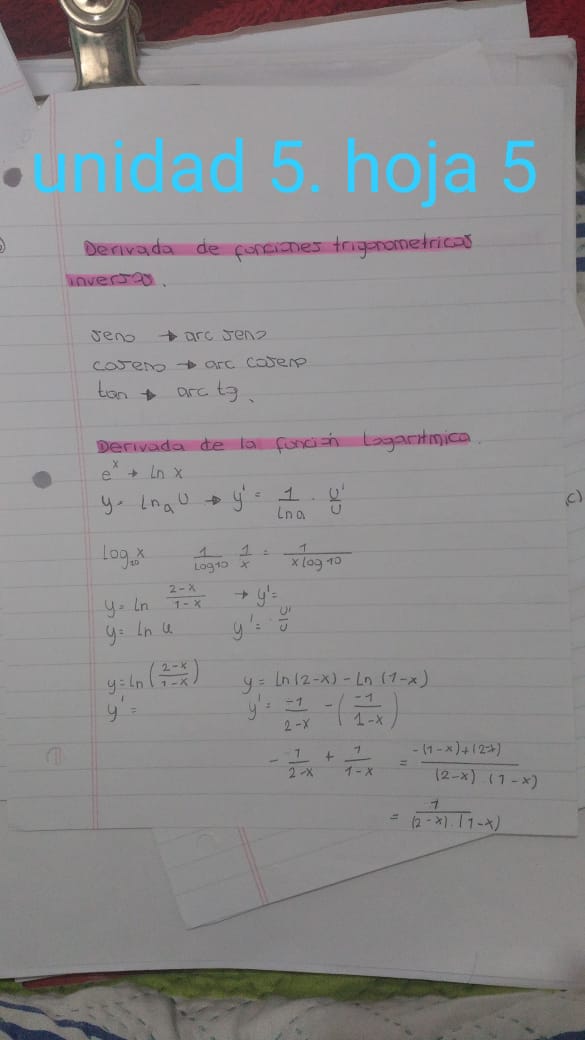 unidad 5. hoja 5
Derivada de funciones trigonometricas
inversas.
seno → arc seno
coseno → arc coseno
tan → arc tg.
Derivada de la función Logaritmica.
e^x → ln x
y = ln_a U → y' = 1/ln a · U'/U
c)
log_10 x 1/Log 10 1/x = 1/x log 10
y = ln 2-x/1-x → y' =
y = ln u y' = U'/U
y = ln (2-x/1-x) y = Ln (2-x) - Ln (1-x)
y' = y' = -1/2-x - (-1/1-x)
- 1/2-x + 1/1-x = -(1-x)+(2-x)/(2-x) . (1-x)
= 1/(2-x).(1-x)